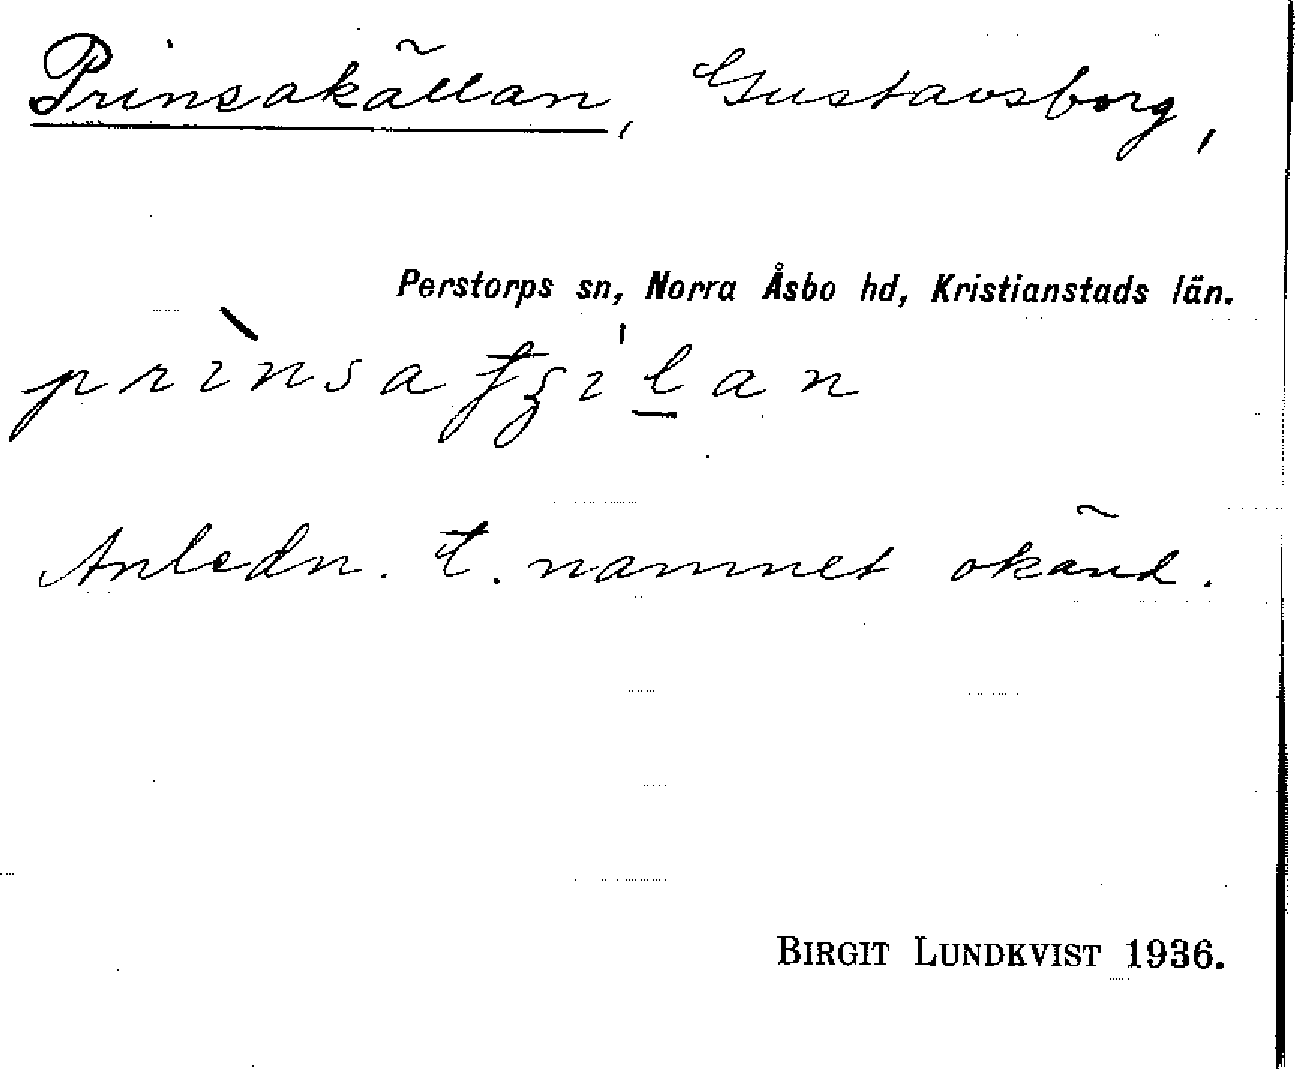 Prinsakällan, Gustavsborg,
Perstorps sn, Norra Åsbo hd, Kristianstads län.
Anledn. t. namnet okänd.
BIRGIT LUNDKVIST 1936.